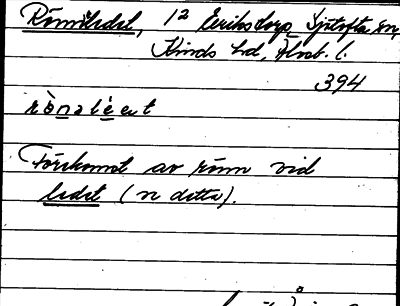 Rönnåledet, 12 Eriksdorp, Sjötofta sn,
Kinds hd, Älvsb. l.
394
rònaléet
Förekomst av rönn vid
ledet (se detta).